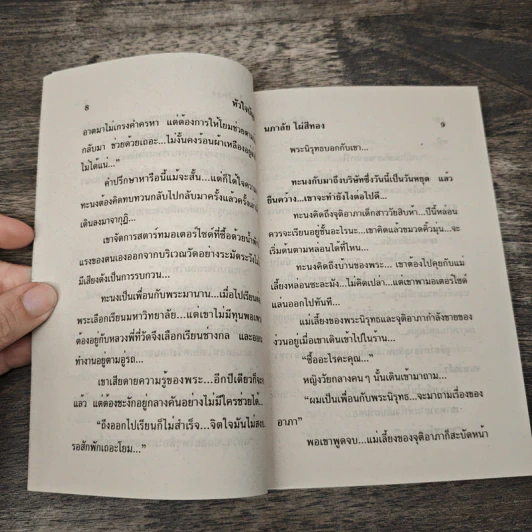 8
หัวใจ
อาตมาไม่เกรงคำครหา แต่ต้องการให้โยมช่วยตาม
กลับมา ช่วยด้วยเถอะ...ไม่งั้นคงร้อนผ้าเหลืองอยู่
ไม่ได้แน่..."
คำปรึกษาหารือนี้แม้จะสั้น...แต่ก็ได้ใจความ
ทะนงต้องคิดทบทวนกลับไปกลับมาครั้งแล้วครั้งเล่า
เดินลงมาจากกุฏิ...
เขาจัดการสตาร์ทมอเตอร์ไซด์ที่ซื้อด้วยน้ำพัก
แรงของตนเองออกจากบริเวณวัดอย่างระมัดระวังไม่
มีเสียงดังเป็นการรบกวน...
ทะนงเป็นเพื่อนกับพระมานาน...เมื่อไปเรียน
พระเลือกเรียนมหาวิทยาลัย...แต่เขาไม่มีทุนพอเพ
ต้องอยู่กับหลวงพี่ที่วัดจึงเลือกเรียนช่างกล และออก
ทำงานอยู่ตามอู่รถ...
เขาเสียดายความรู้ของพระ...อีกปีเดียวก็จะ
แล้ว แต่ต้องชะงักอยู่กลางคันอย่างไม่มีใครช่วยได้...
"ถึงออกไปเรียนก็ไม่สำเร็จ...จิตใจมันไม่สงบ
รอสักพักเถอะโยม..."
นภาลัย ไผ่สีทอง
9
พระนิรุทธบอกกับเขา...
ทะนงกับมาถึงบริษัทซึ่งวันนี้เป็นวันหยุด แล้ว
ยืนคว้าง...เขาจะทำยังไงต่อไปดี...
ทะนงคิดถึงจุติอาภาเด็กสาววัยสิบห้า...ปีนี้หล่อน
ควรจะเรียนอยู่ชั้นอะไรนะ...เขาคิดแล้วขมวดคิ้วมุ่น...จะ
เริ่มต้นตามหล่อนได้ที่ไหน...
ทะนงคิดถึงบ้านของพระ... เขาต้องไปคุยกับแม่
เลี้ยงหล่อนซะละมัง...ไม่คิดเปล่า...แต่เขาพามอเตอร์ไซด์
แล่นออกไปทันที...
แม่เลี้ยงของพระนิรุทธและจุติอาภากำลังขายของ
ง่วนอยู่เมื่อเขาเดินเข้าไปในร้าน...
"ซื้ออะไรคะคุณ..."
หญิงวัยกลางคน ๆ นั้นเดินเข้ามาถาม...
"ผมเป็นเพื่อนกับพระนิรุทธ...จะมาถามเรื่องของ
อาภา"
พอเขาพูดจบ...แม่เลี้ยงของจุติอาภาก็สะบัดหน้า